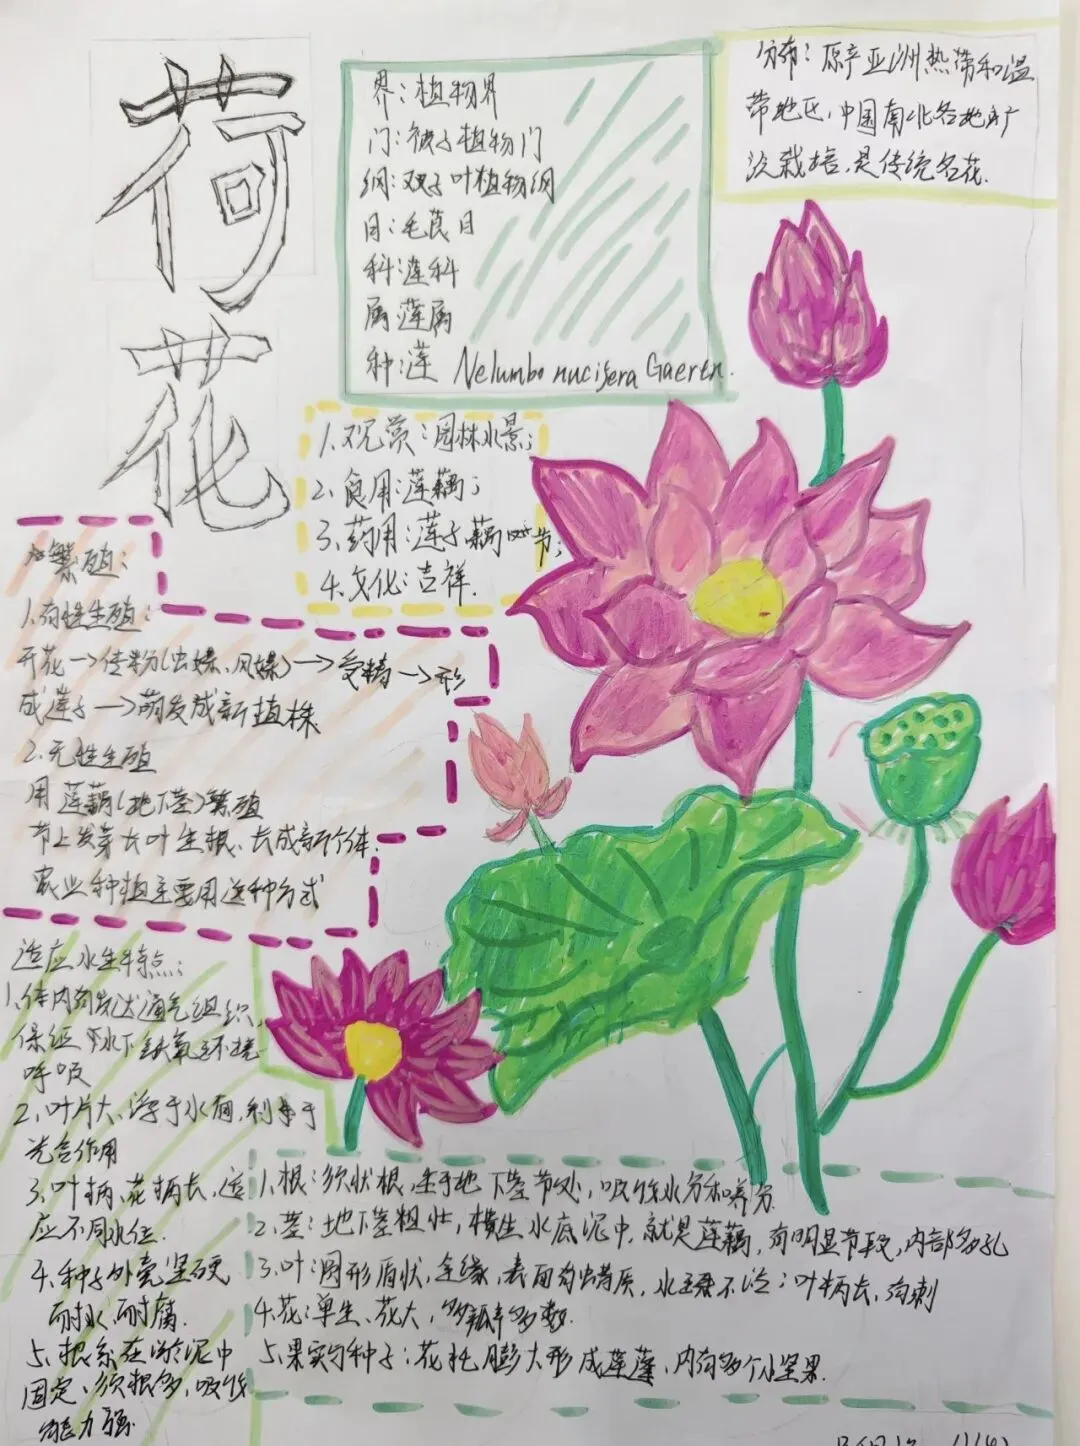 荷花
界：植物界
门：被子植物门
纲：双子叶植物纲
目：毛茛目
科：莲科
属：莲属
种：莲 Nelumbo nucifera Gaertn.
分布：原产亚洲热带和温
带地区，中国南北各地广
泛栽培，是传统名花.
1.观赏：园林水景；
2、食用：莲藕；
3、药用：莲子 藕 节；
4.文化：吉祥.
繁殖：
1.有性生殖：
开花→传粉(虫媒、风媒)→受精→形
成莲子→萌发成新植株
2.无性生殖
用莲藕(地下茎)繁殖
节上发芽长叶生根、长成新个体.
农业种植主要用这种方式
适应水生特点：
1、体内有发达通气组织，
保证 水下缺氧环境
呼吸
2、叶片大、浮于水面，利于
光合作用
3、叶柄、花柄长，适
应不同水位.
4、种子外壳坚硬
耐水、耐腐.
5、根系在淤泥中
固定、须根多，吸收
能力强
1、根：须状根，生于地下茎节处，吸收水分和养分
2、茎：地下茎粗壮，横生水底泥中，就是莲藕，有明显节段，内部多孔
3、叶：圆形盾状，全缘，表面有蜡质，水珠不沾；叶柄长，有刺
4、花：单生、花大，多瓣多数.
5、果实与种子：花托膨大形成莲蓬，内有多个小坚果.